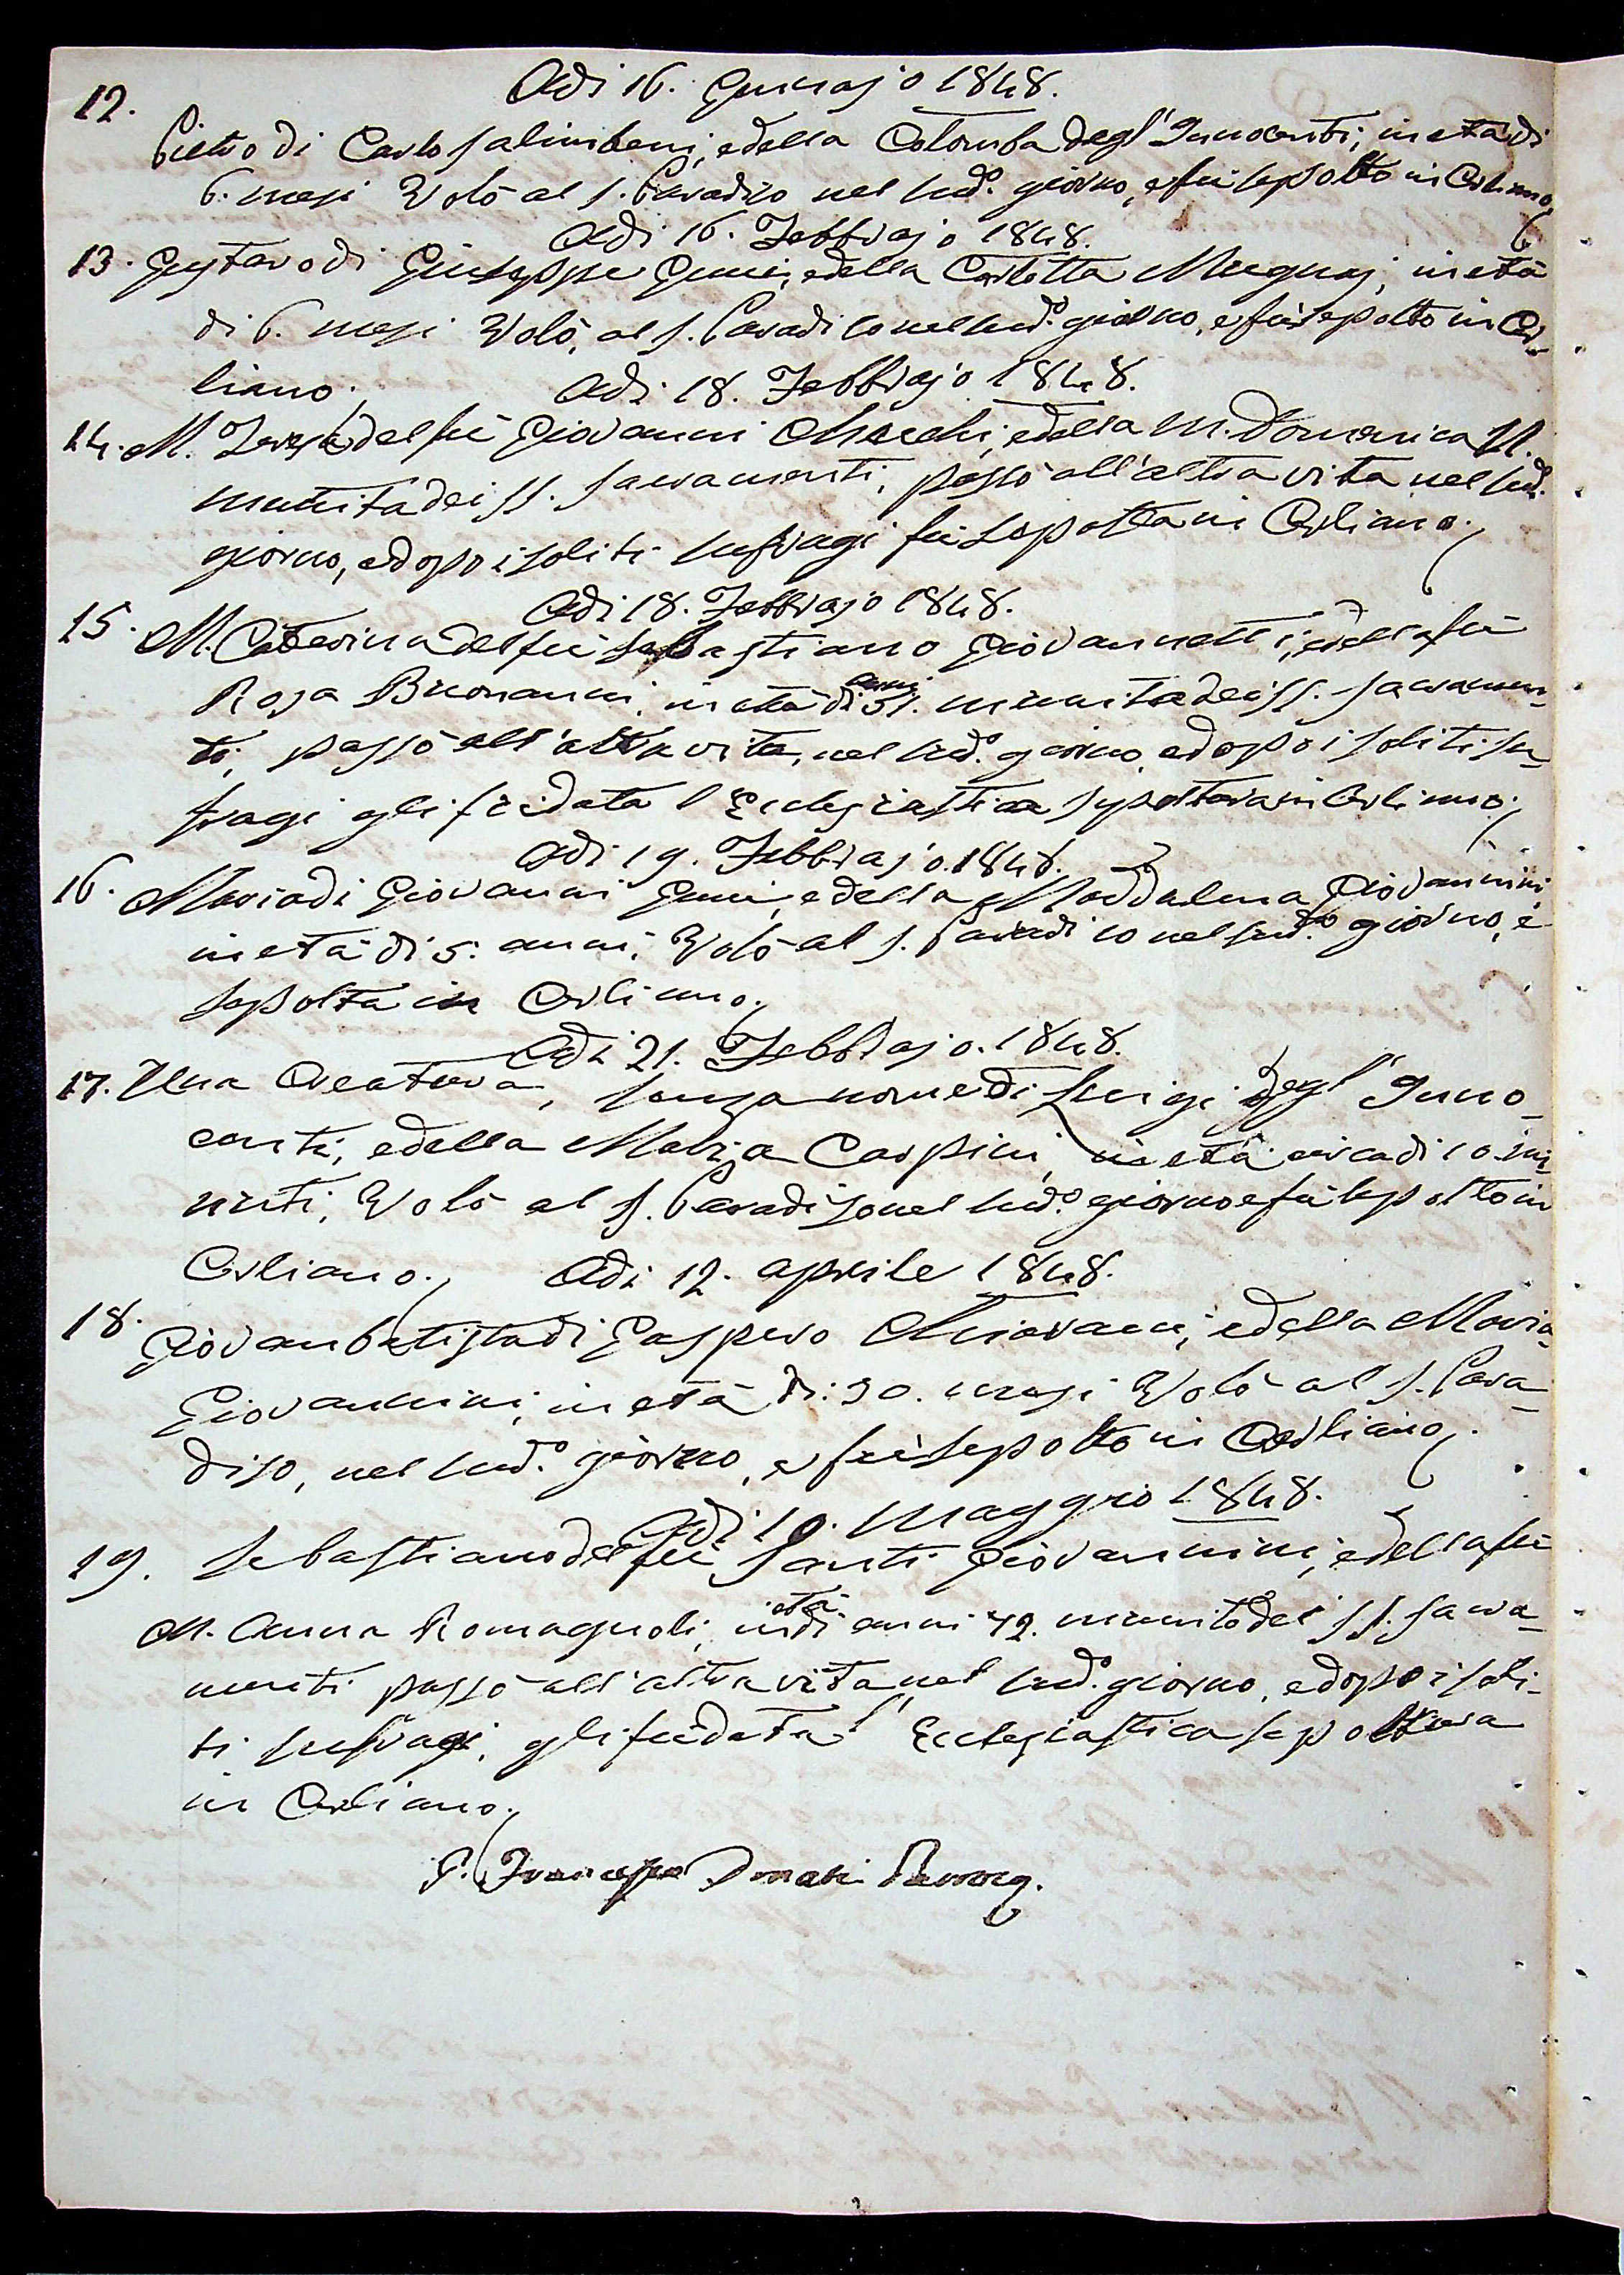 Adi 16. Gennajo 1848.
12.
Pietro di Carlo Salimbeni, e della Colomba degl'Innocenti, in età di
6. mesi Volò al S. Paradiso nel sud.o giorno, e fù sepolto in Corliano,
Adi 16. Febbrajo 1848.
13. Gustavo di Giuseppe Genni, e della Carlotta Mugnaj, in età
di 6. mesi Volò, al S. Paradiso nel sud.o giorno, e fù sepolto in Cor=
liano. Adi 18. Febbrajo 1848.
14. M. Teresa del fù Giovanni e della M. Domenica N.
munita dei SS. Sacramenti, passò all'altra vita nel sud.
giorno, e dopo i soliti sufragi fù sepolta in Corliano.
Adi 18. Febbrajo 1848.
15. M. Caterina del fù Sebastiano Giovannetti, e della fù
Rosa Buonanni, in età di anni 51. munita dei SS. Sacramen=
ti, passò all'altra vita, nel sud.o giorno, e dopo i soliti su=
fragi gli fù data l'Eclesiastica sepoltura in Corliano.
Adi 19. Febbrajo. 1848.
16. Maria di Giovanni Genni, e della Maddalena Giovannini
in età di 5. anni, Volò al S. Paradiso nel sud.o giorno, è
sepolta in Corliano.
Adi 21. Febbrajo. 1848.
17. Una Creatura, senza nome di Luigi degl'Inno=
centi, e della Maria Carpini, in età circa di 10. mi=
nuti, Volò al S. Paradiso nel sud.o giorno e fù sepolto in
Corliano. Adi 12. aprile 1848.
18. Giovanbatista di Gaspero e della Maria
Giovannini, in età di: 30. mesi Volò al S. Para=
diso, nel sud.o giorno, e fù sepolto in Corliano.
Adi 10. Maggio 1848.
19. Sebastiano del fù Santi Giovannini, e della fù
M. Anna Romagnoli, in età di anni 72. munito dei SS. Sacra=
menti passò all'altra vita nel sud.o giorno, e dopo i soli=
ti sufragi, gli fù data l'Eclesiastica sepoltura
in Corliano.
P. Francesco Donati